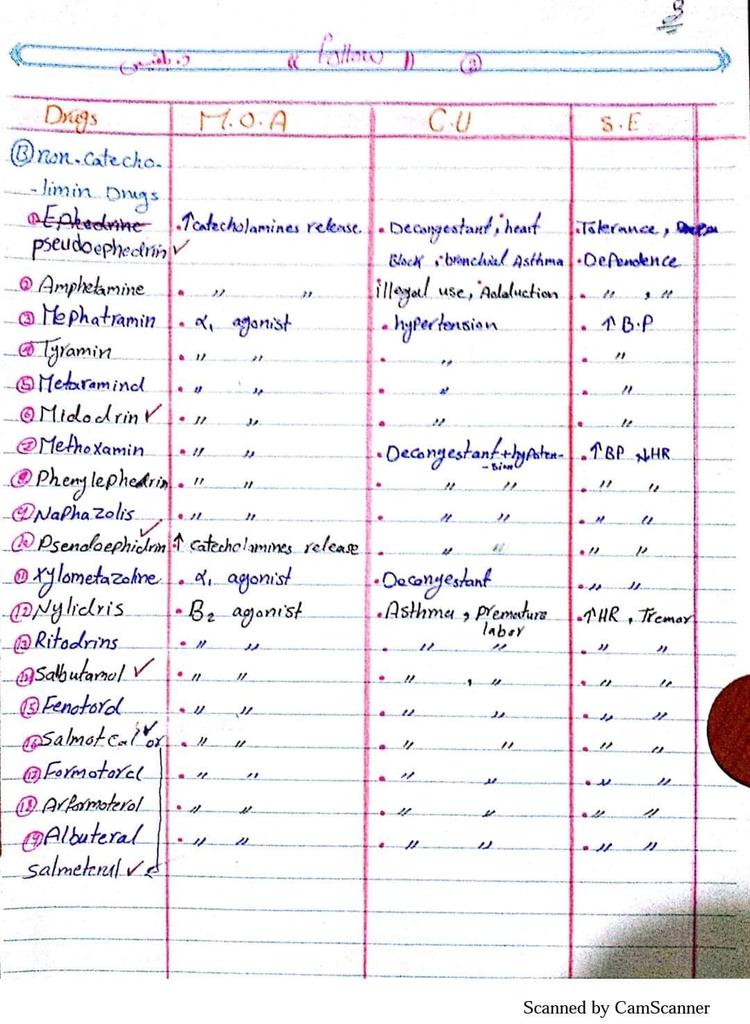 « follow »
Drugs M.O.A C.U S.E
Ⓑ non-Catecho-
-limin Drugs
① Ephedrine •↑catecholamines release • Decongestant, heart •Tolerance,
pseudoephedrin ✓ Block, bronchial Asthma •Dependence
② Amphetamine • " " illegal use, Adduction • " , "
③ Mephatramin • α₁ agonist • hypertension • ↑ B.P
④ Tyramin • " " • " • "
⑤ Metaramind • " " • " • "
⑥ Midodrin ✓ • " " • " • "
⑦ Methoxamin • " " • Decongestant + hypoten- • ↑BP ↓HR
-sion
⑧ Phenylephedrin • " " • " " • " "
⑨ Naphazolis • " " • " " • " "
⑩ Pseudoephidrin ✓ ↑ catecholamines release • " " • " "
⑪ Xylometazoline • α₁ agonist • Decongestant • " "
⑫ Nylidris • B₂ agonist • Asthma, Premature • ↑HR, Tremor
labor
⑬ Ritodrins • " " • " " • " "
⑭ Salbutamol ✓ • " " • " , " • " "
⑮ Fenotord • " " • " " • " "
⑯ Salmotcal ✓ or • " " • " " • " "
⑰ Formotorol • " " • " " • " "
⑱ Arformoterol • " " • " " • " "
⑲ Albuteral • " " • " " • " "
Salmeterul ✓
Scanned by CamScanner